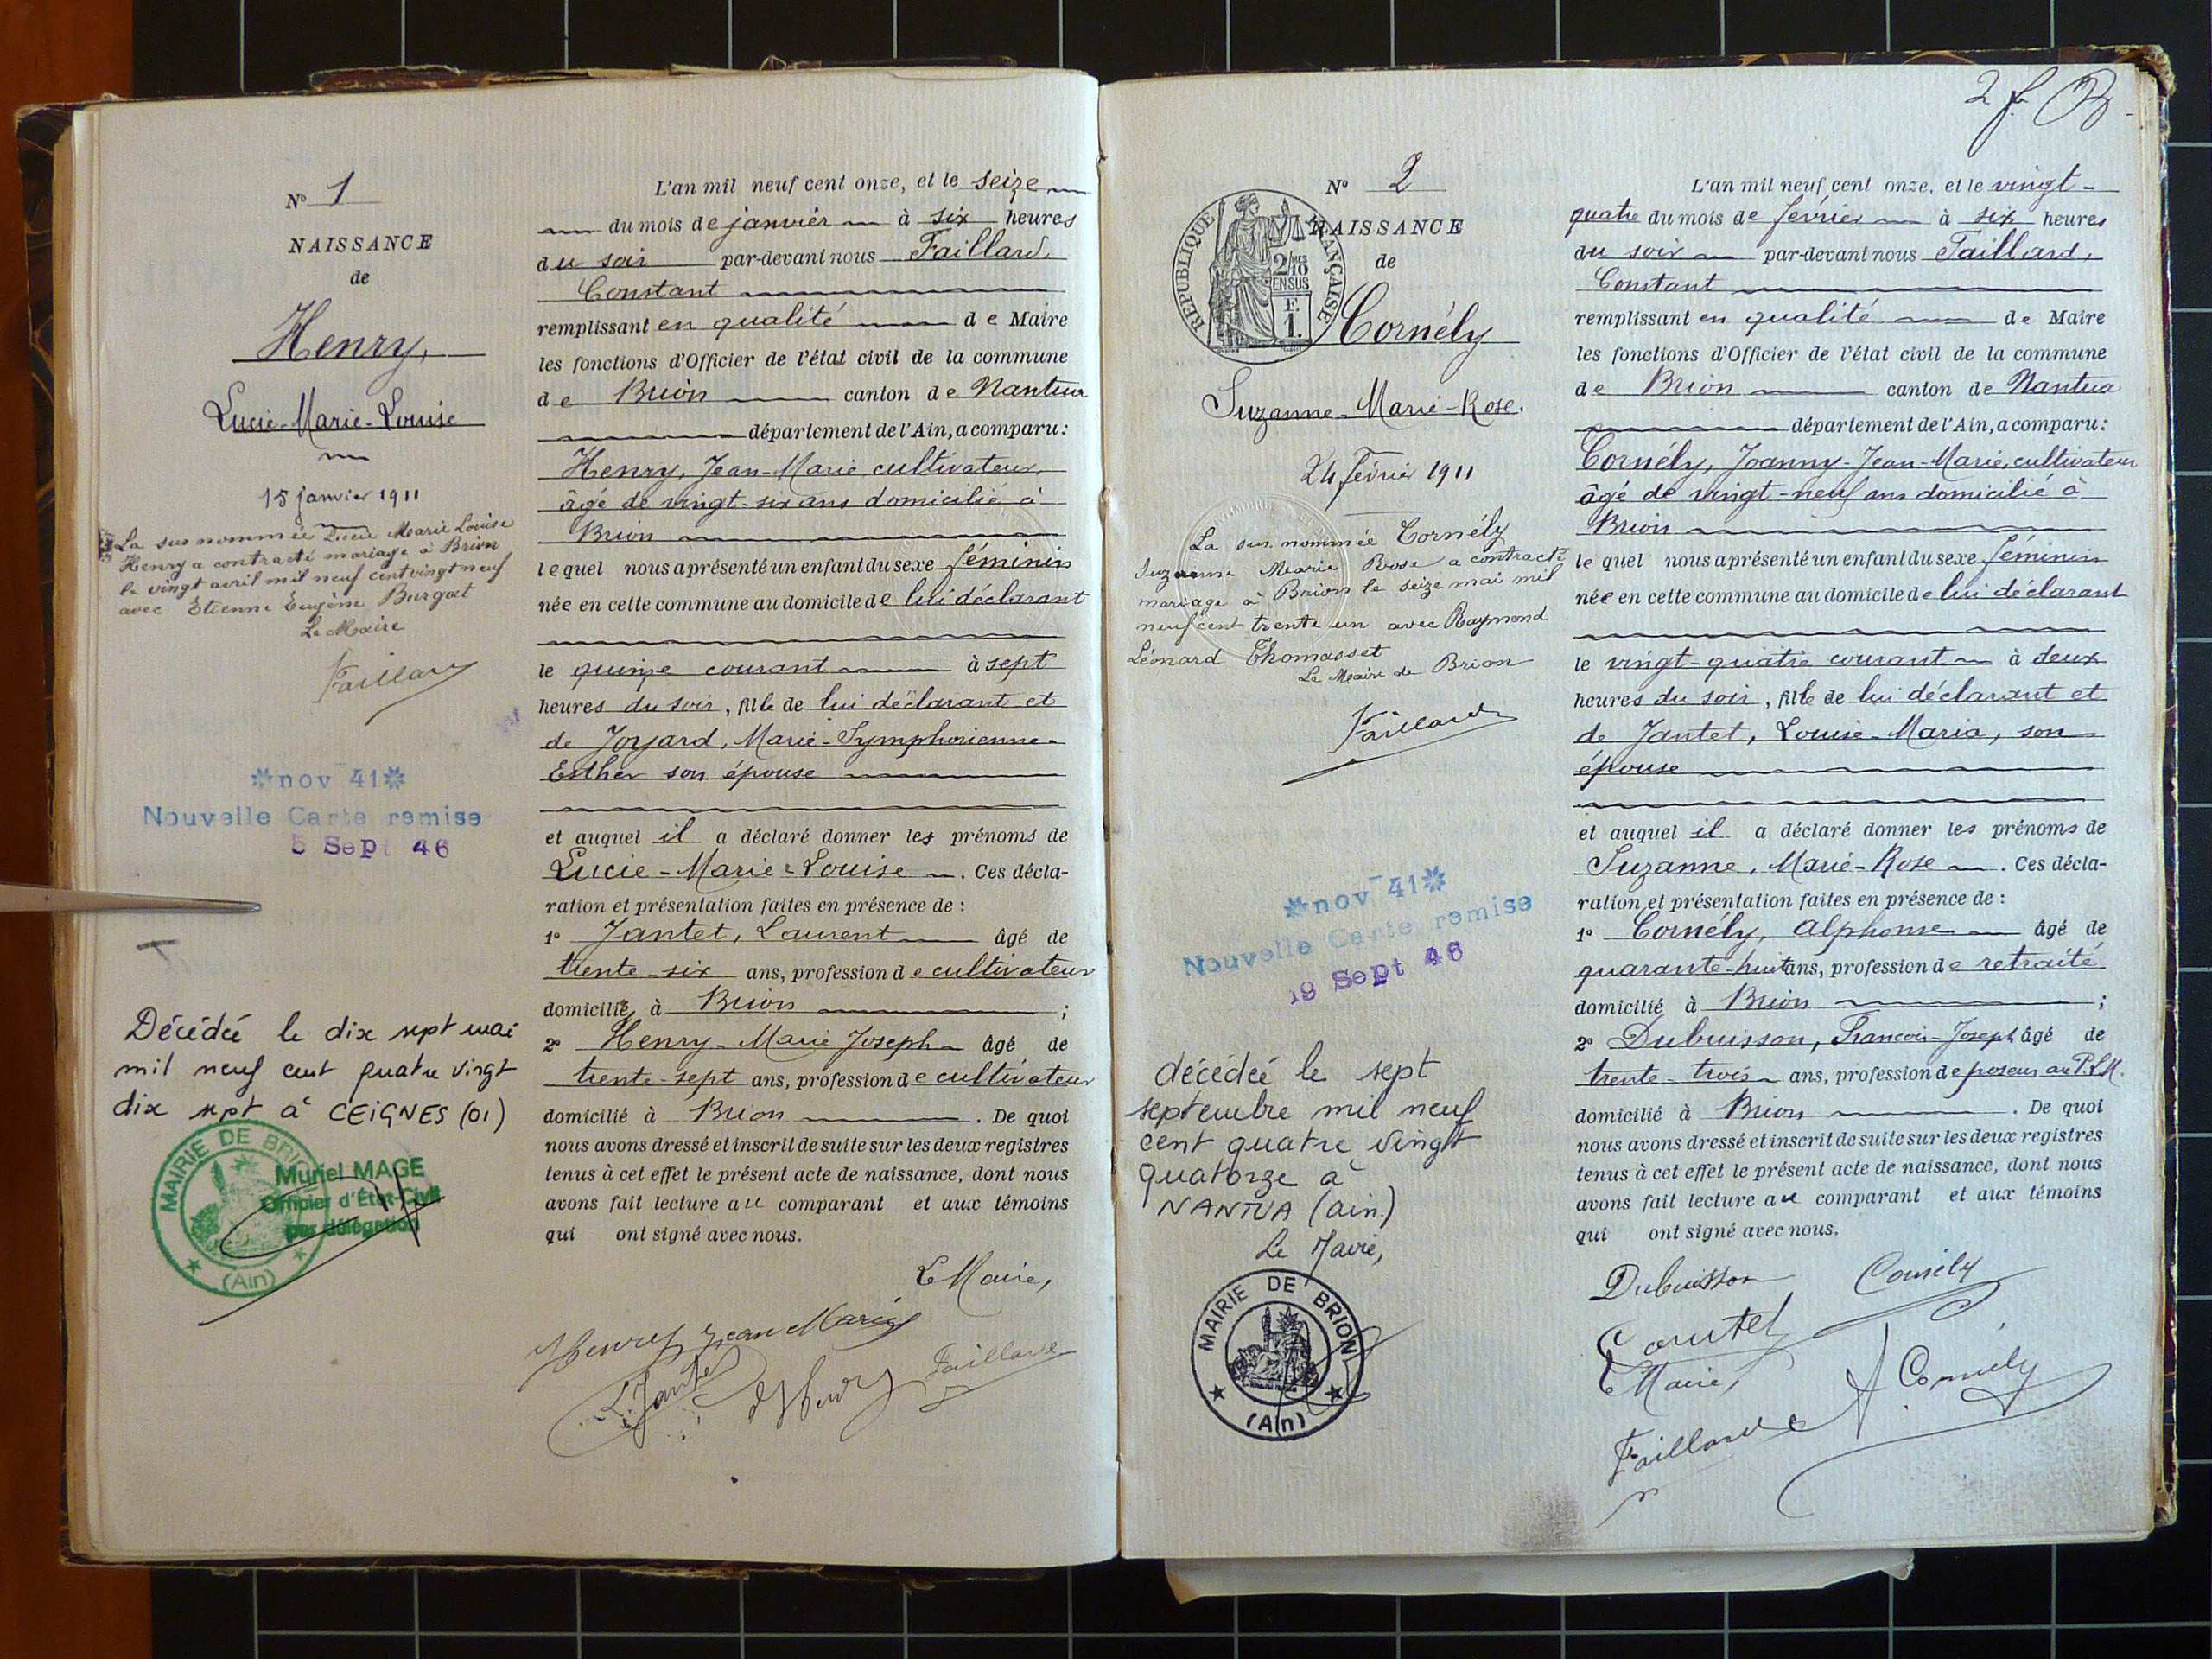 N° 1
NAISSANCE
de
Henry,
Lucie-Marie-Louise
15 janvier 1911
La sus nommée Lucie Marie Louise
Henry a contracté mariage à Brion
le vingt avril mil neuf cent vingt neuf
avec Étienne Eugène Burgat
Le Maire
Faillard
*nov 41*
Nouvelle Carte remise
5 Sept 46
Décédée le dix sept mai
mil neuf cent quatre vingt
dix sept à CEIGNES (01)
MAIRIE DE BRION
(Ain)
Muriel MAGE
Officier d'État-Civil
par délégation
L'an mil neuf cent onze, et le seize
du mois de janvier à six heures
du soir par-devant nous Faillard,
Constant
remplissant en qualité de Maire
les fonctions d'Officier de l'état civil de la commune
de Brion canton de Nantua
département de l'Ain, a comparu:
Henry, Jean-Marie, cultivateur,
âgé de vingt-six ans domicilié à
Brion
lequel nous a présenté un enfant du sexe féminin
née en cette commune au domicile de lui déclarant
le quinze courant à sept
heures du soir, fille de lui déclarant et
de Joyard, Marie-Symphorienne-
Esther son épouse
et auquel il a déclaré donner les prénoms de
Lucie-Marie-Louise. Ces décla-
ration et présentation faites en présence de:
1° Jantet, Laurent âgé de
trente-six ans, profession de cultivateur
domicilié à Brion ;
2° Henry-Marie Joseph âgé de
trente-sept ans, profession de cultivateur
domicilié à Brion. De quoi
nous avons dressé et inscrit de suite sur les deux registres
tenus à cet effet le présent acte de naissance, dont nous
avons fait lecture au comparant et aux témoins
qui ont signé avec nous.
Le Maire,
Henry Jean Marie
L. Jantet Henry Faillard
2 f.
N° 2
NAISSANCE
de
RÉPUBLIQUE FRANÇAISE
2/10MES
EN SUS
F.
1.
Cornély
Suzanne-Marie-Rose.
24 février 1911
La sus-nommée Cornély
Suzanne Marie Rose a contracté
mariage à Brion le seize mai mil
neuf cent trente un avec Raymond
Léonard Thomasset
Le Maire de Brion
Faillard
*nov 41*
Nouvelle Carte remise
19 Sept 46
décédée le sept
septembre mil neuf
cent quatre vingt
quatorze à
NANTUA (Ain)
Le Maire,
MAIRIE DE BRION
(Ain)
L'an mil neuf cent onze, et le vingt-
quatre du mois de février à six heures
du soir par-devant nous Faillard,
Constant
remplissant en qualité de Maire
les fonctions d'Officier de l'état civil de la commune
de Brion canton de Nantua
département de l'Ain, a comparu:
Cornély, Joanny-Jean-Marie, cultivateur
âgé de vingt-neuf ans domicilié à
Brion
lequel nous a présenté un enfant du sexe féminin
née en cette commune au domicile de lui déclarant
le vingt-quatre courant à deux
heures du soir, fille de lui déclarant et
de Jantet, Louise-Maria, son
épouse
et auquel il a déclaré donner les prénoms de
Suzanne, Marie-Rose. Ces décla-
ration et présentation faites en présence de:
1° Cornély, Alphonse âgé de
quarante-huit ans, profession de retraité
domicilié à Brion ;
2° Dubuisson, François-Joseph âgé de
trente-trois ans, profession de poseur au P.L.M.
domicilié à Brion. De quoi
nous avons dressé et inscrit de suite sur les deux registres
tenus à cet effet le présent acte de naissance, dont nous
avons fait lecture au comparant et aux témoins
qui ont signé avec nous.
Dubuisson Cornély
Le Maire,
Faillard A. Cornély